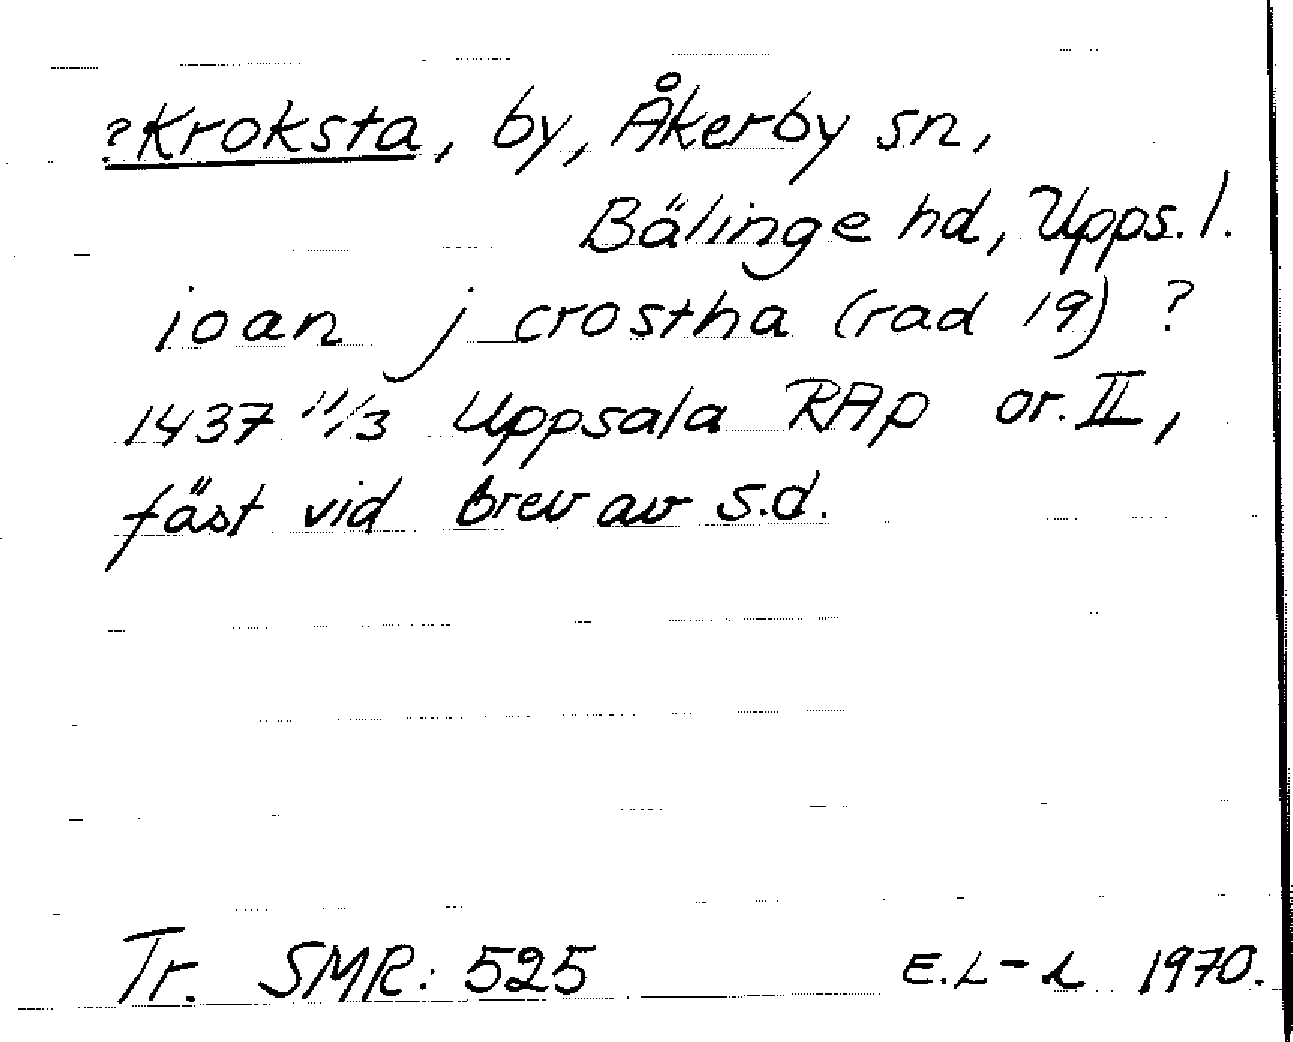 ?Kroksta, by, Åkerby sn,
Bälinge hd, Upps. l.
ioan j crostha (rad 19) ?
1437 11/3 Uppsala RAp or. II,
fäst vid brev av s.d.
Tr. SMR: 525 E.L-L 1970.